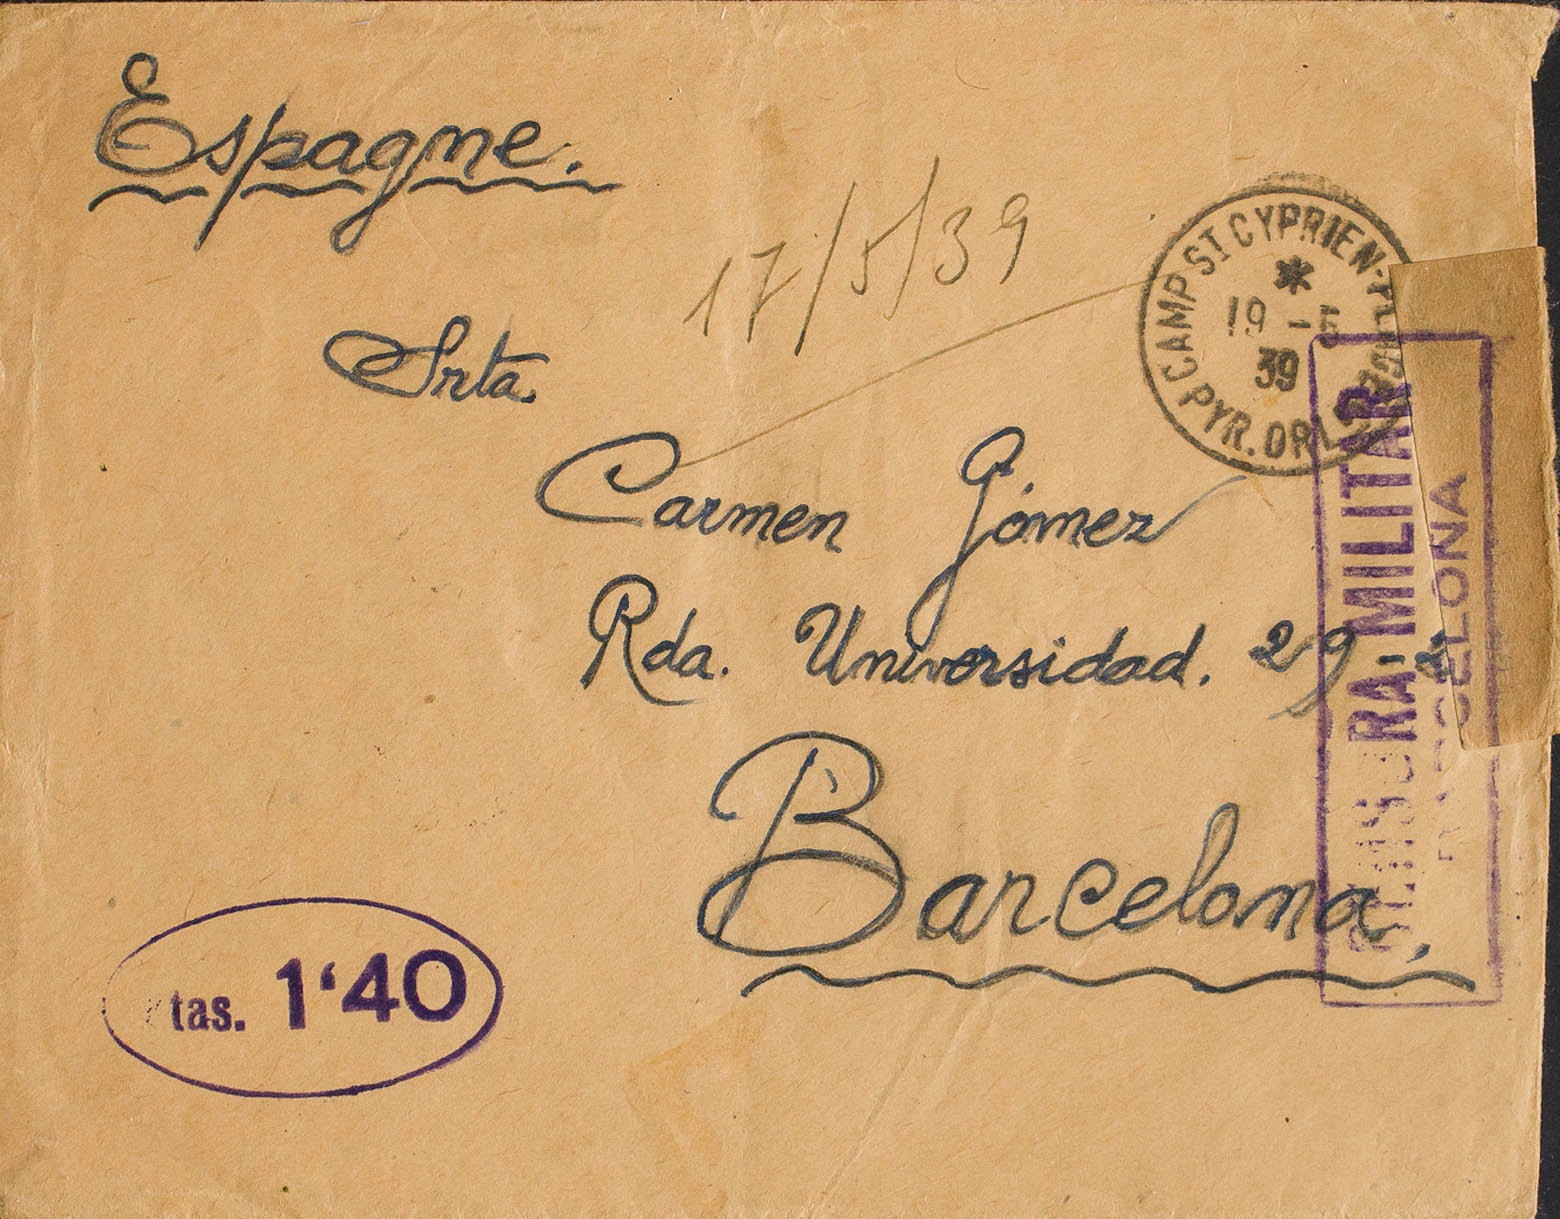 Espagne.
17/5/39
CAMP ST CYPRIEN-
19 -5
39
PYR. ORLES
Srta.
Carmen Gómez
Rda. Universidad. 29 2º
Barcelona.
CENSURA MILITAR
BARCELONA
tas. 1'40